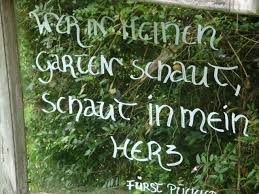 WER IN MEINEN
GARTEN SCHAUT,
SCHAUT IN MEIN
HERZ
FÜRST PÜCKLER